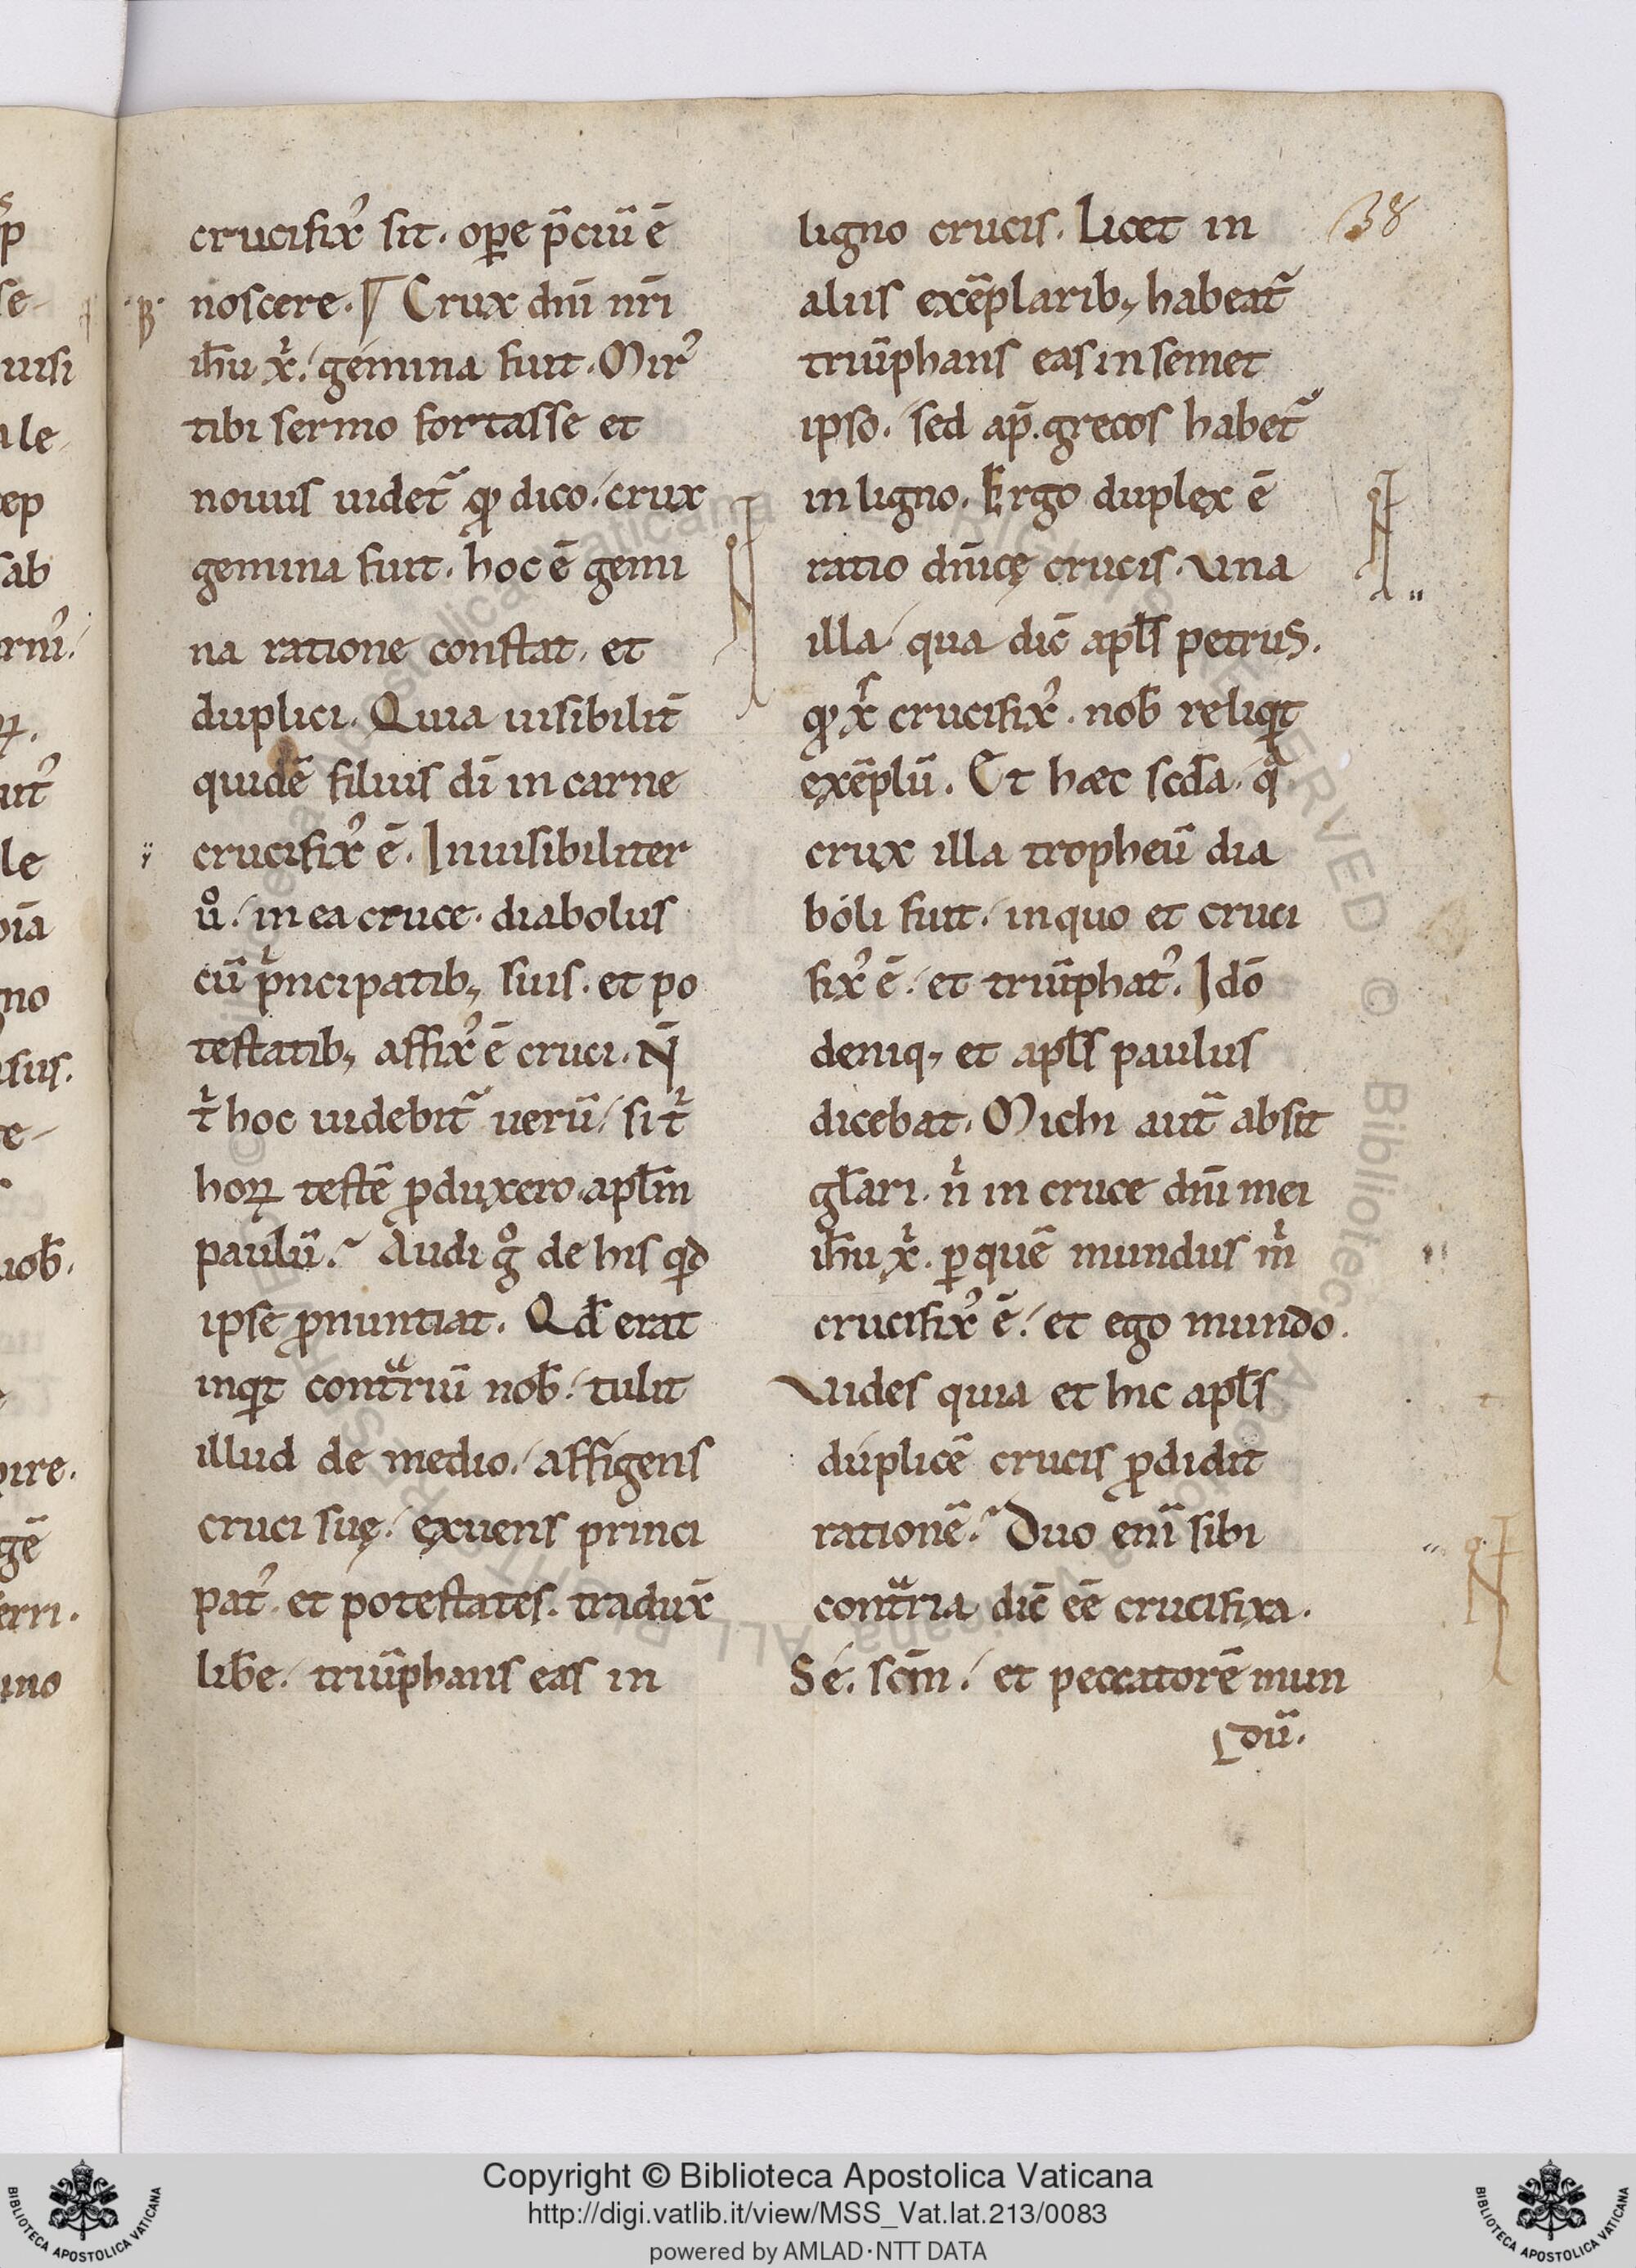 38
crucifix᾽ sit. ope p̄ciū ē
noscere. ¶ Crux dn̄i nr̄i
ih̄u x̓. gemina fuit. Mir᾽
tibi sermo fortasse et
nouus uidet᷑ qđ dico. crux
gemina fuit. hoc ē gemi
na ratione constat. et
duplici. Quia uisibilit̄
quidē filius dī in carne
crucifix᾽ ē. Inuisibiliter
uͦ. in ea cruce. diabolus
cū pͥncipatib; suis. et po
testatib; affix᾽ ē cruci. N̄
tͥ hoc uidebit᷑ uerū. si tͥ
hoꝝ testē ꝓduxero. apl̄m
paulū. Audi gͦ de his qđ
ipse ꝓnuntiat. Qđ erat
inqͥt contͣriū nob̄. tulit
illud de medio. affigens
cruci suę. exuens princi
pat᾽ et potestates. tradux̄
lib̄e. triūphans eas in
ligno crucis. Licet in
aliis exēplarib; habeat᷑
triūphans eas in semet
ipso. sed ap̄. grecos habet᷑
in ligno. Ergo duplex ē
ratio dn̄icę crucis. Una
illa qua dic̄ apl̄s petrus.
qđ x̄r crucifix᾽. nob̄ reliqͥt
exēplū. Et hæc scđa. qͣ
crux illa tropheū dia
boli fuit. in quo et cruci
fix᾽ ē. et triūphat᾽. Idō
deniq; et apl̄s paulus
dicebat. Michi aut̄ absit
gl̄ari. nͥ in cruce dn̄i mei
ih̄u x̓. ꝑ quē mundus mͥ
crucifix᾽ ē. et ego mundo.
Uides quia et hic apl̄s
duplicē crucis ꝓdidit
rationē. Duo enī sibi
contͣria dic̄ eē crucifixa.
Se. sc̄m. et peccatorē mun
dū.
Copyright © Biblioteca Apostolica Vaticana
http://digi.vatlib.it/view/MSS_Vat.lat.213/0083
powered by AMLAD·NTT DATA